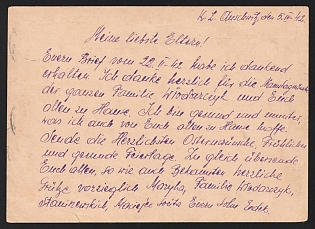 K. L. Auschwitz, den 5. IV. 42.
Meine liebste Eltern!
Euern Brief vom 22.II-42. habe ich dankend
erhalten. Ich danke herzlich für die
der ganzen Familie Włodarczyk und Euch
allen zu Hause. Ich bin gesund und munter,
was ich auch von Euch allen zu Hause hoffe.
Sende die Herzlichsten Osterwünsche, Fröhlichen
und gesunde Feiertage. Zu gleich übersende
Euch allen, so wie auch Bekannten herzliche
Grüße vorzieglich Marycha, Familie Włodarczyk,
Euern Sohn